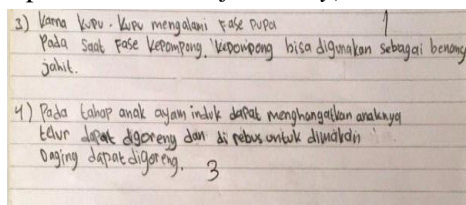 3) Karna kupu-kupu mengalami Fase pupa 1
Pada saat Fase kepompong, kepompong bisa digunakan sebagai benang
jahit.
4) Pada tahap anak ayam induk dapat menghangatkan anaknya
telur dapat digoreng dan di rebus untuk dimakan
Daging dapat digoreng. 3